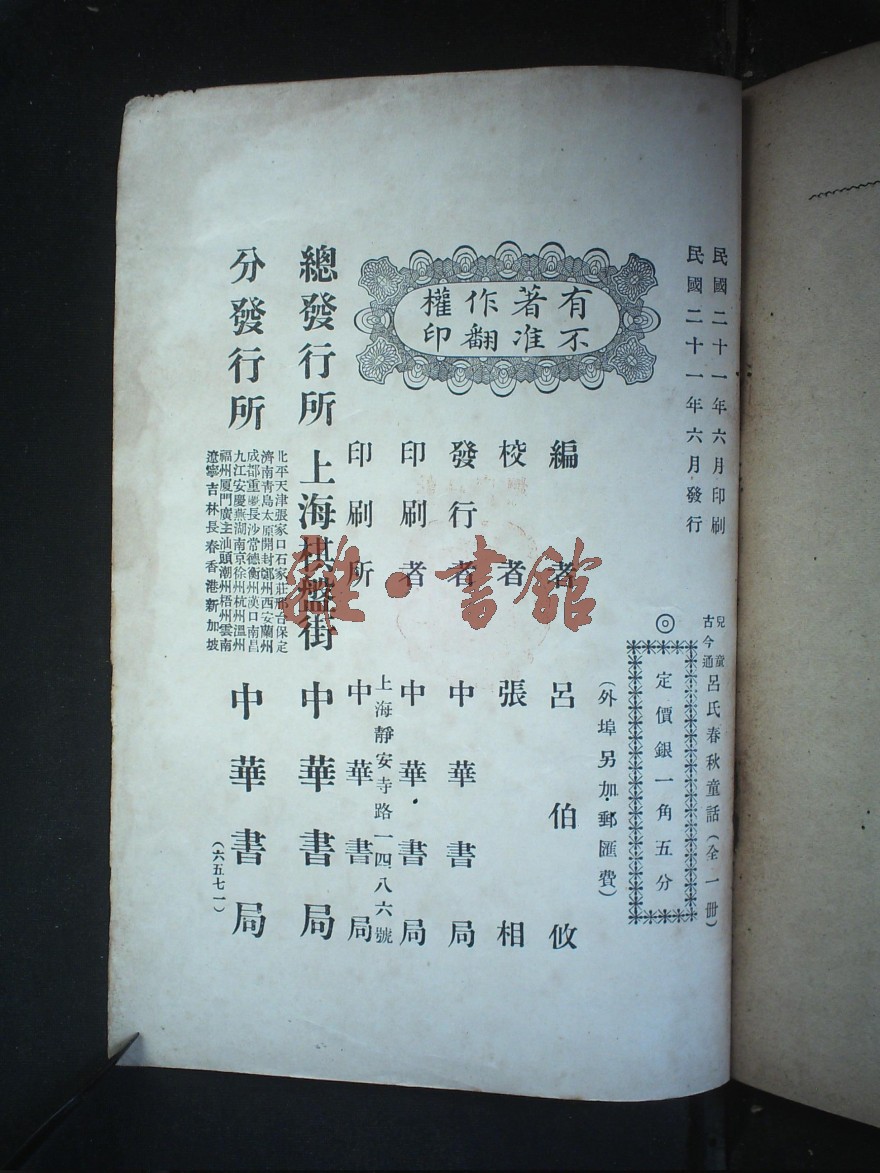 民國二十一年六月印刷
民國二十一年六月發行
兒童古今通 呂氏春秋童話（全一冊）
◎
定價銀一角五分
（外埠另加郵匯費）
有著作權
不准翻印
編者 呂伯攸
校者 張相
發行者 中華書局
印刷者 中華書局
上海靜安寺路一四八六號
印刷所 中華書局
總發行所 上海棋盤街 中華書局
分發行所
北平天津張家口石家莊邢台保定
濟南青島太原開封鄭州西安蘭州
成都重慶長沙常德衡州漢口南昌
九江安慶蕪湖南京徐州杭州溫州
福州厦門廣主汕頭潮州梧州雲南
遼寧吉林長春香港新加坡
中華書局
（六五七一）
雜·書館